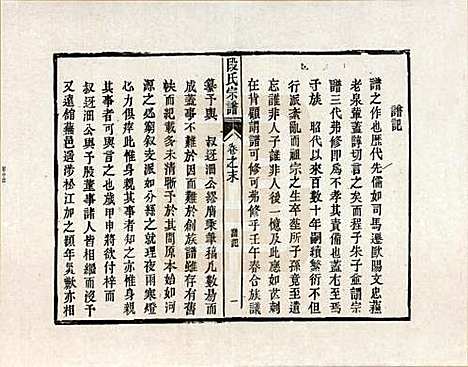 譜記
譜之作也歷代先儒如司馬遷歐陽文忠蘇
老泉輩蓋諄諄言之矣而程子朱子僉謂宗
譜三代弗修即弗孝其責備也蓋甚嚴焉我
子族 昭代以來百數十年嗣續繁衍不但
行派紊亂而祖宗之生卒塋所子孫竟有
忘諱非人子諱非人後一憶及此應如芒刺
在背顧謂譜可修可弗修乎壬午春合族議
段氏宗譜
卷之末
譜記
一
纂予與 叔迓洄公繆膺秉筆稿凡數易而
成蓋事不難于創而難于因族譜雖存有舊
帙而上世多未清晰予於其間原本始如河
源之必窮叙支派如分絡之就貫雨夜寒燈
心力俱瘁此惟身親其事者知之亦惟身親
其事者可與言之也歲甲申將欲付梓而
叔迓洄公與予股董事諸人皆相繼而沒予
又遠館蕪邑邊涉松江加之頻年災歉亦立